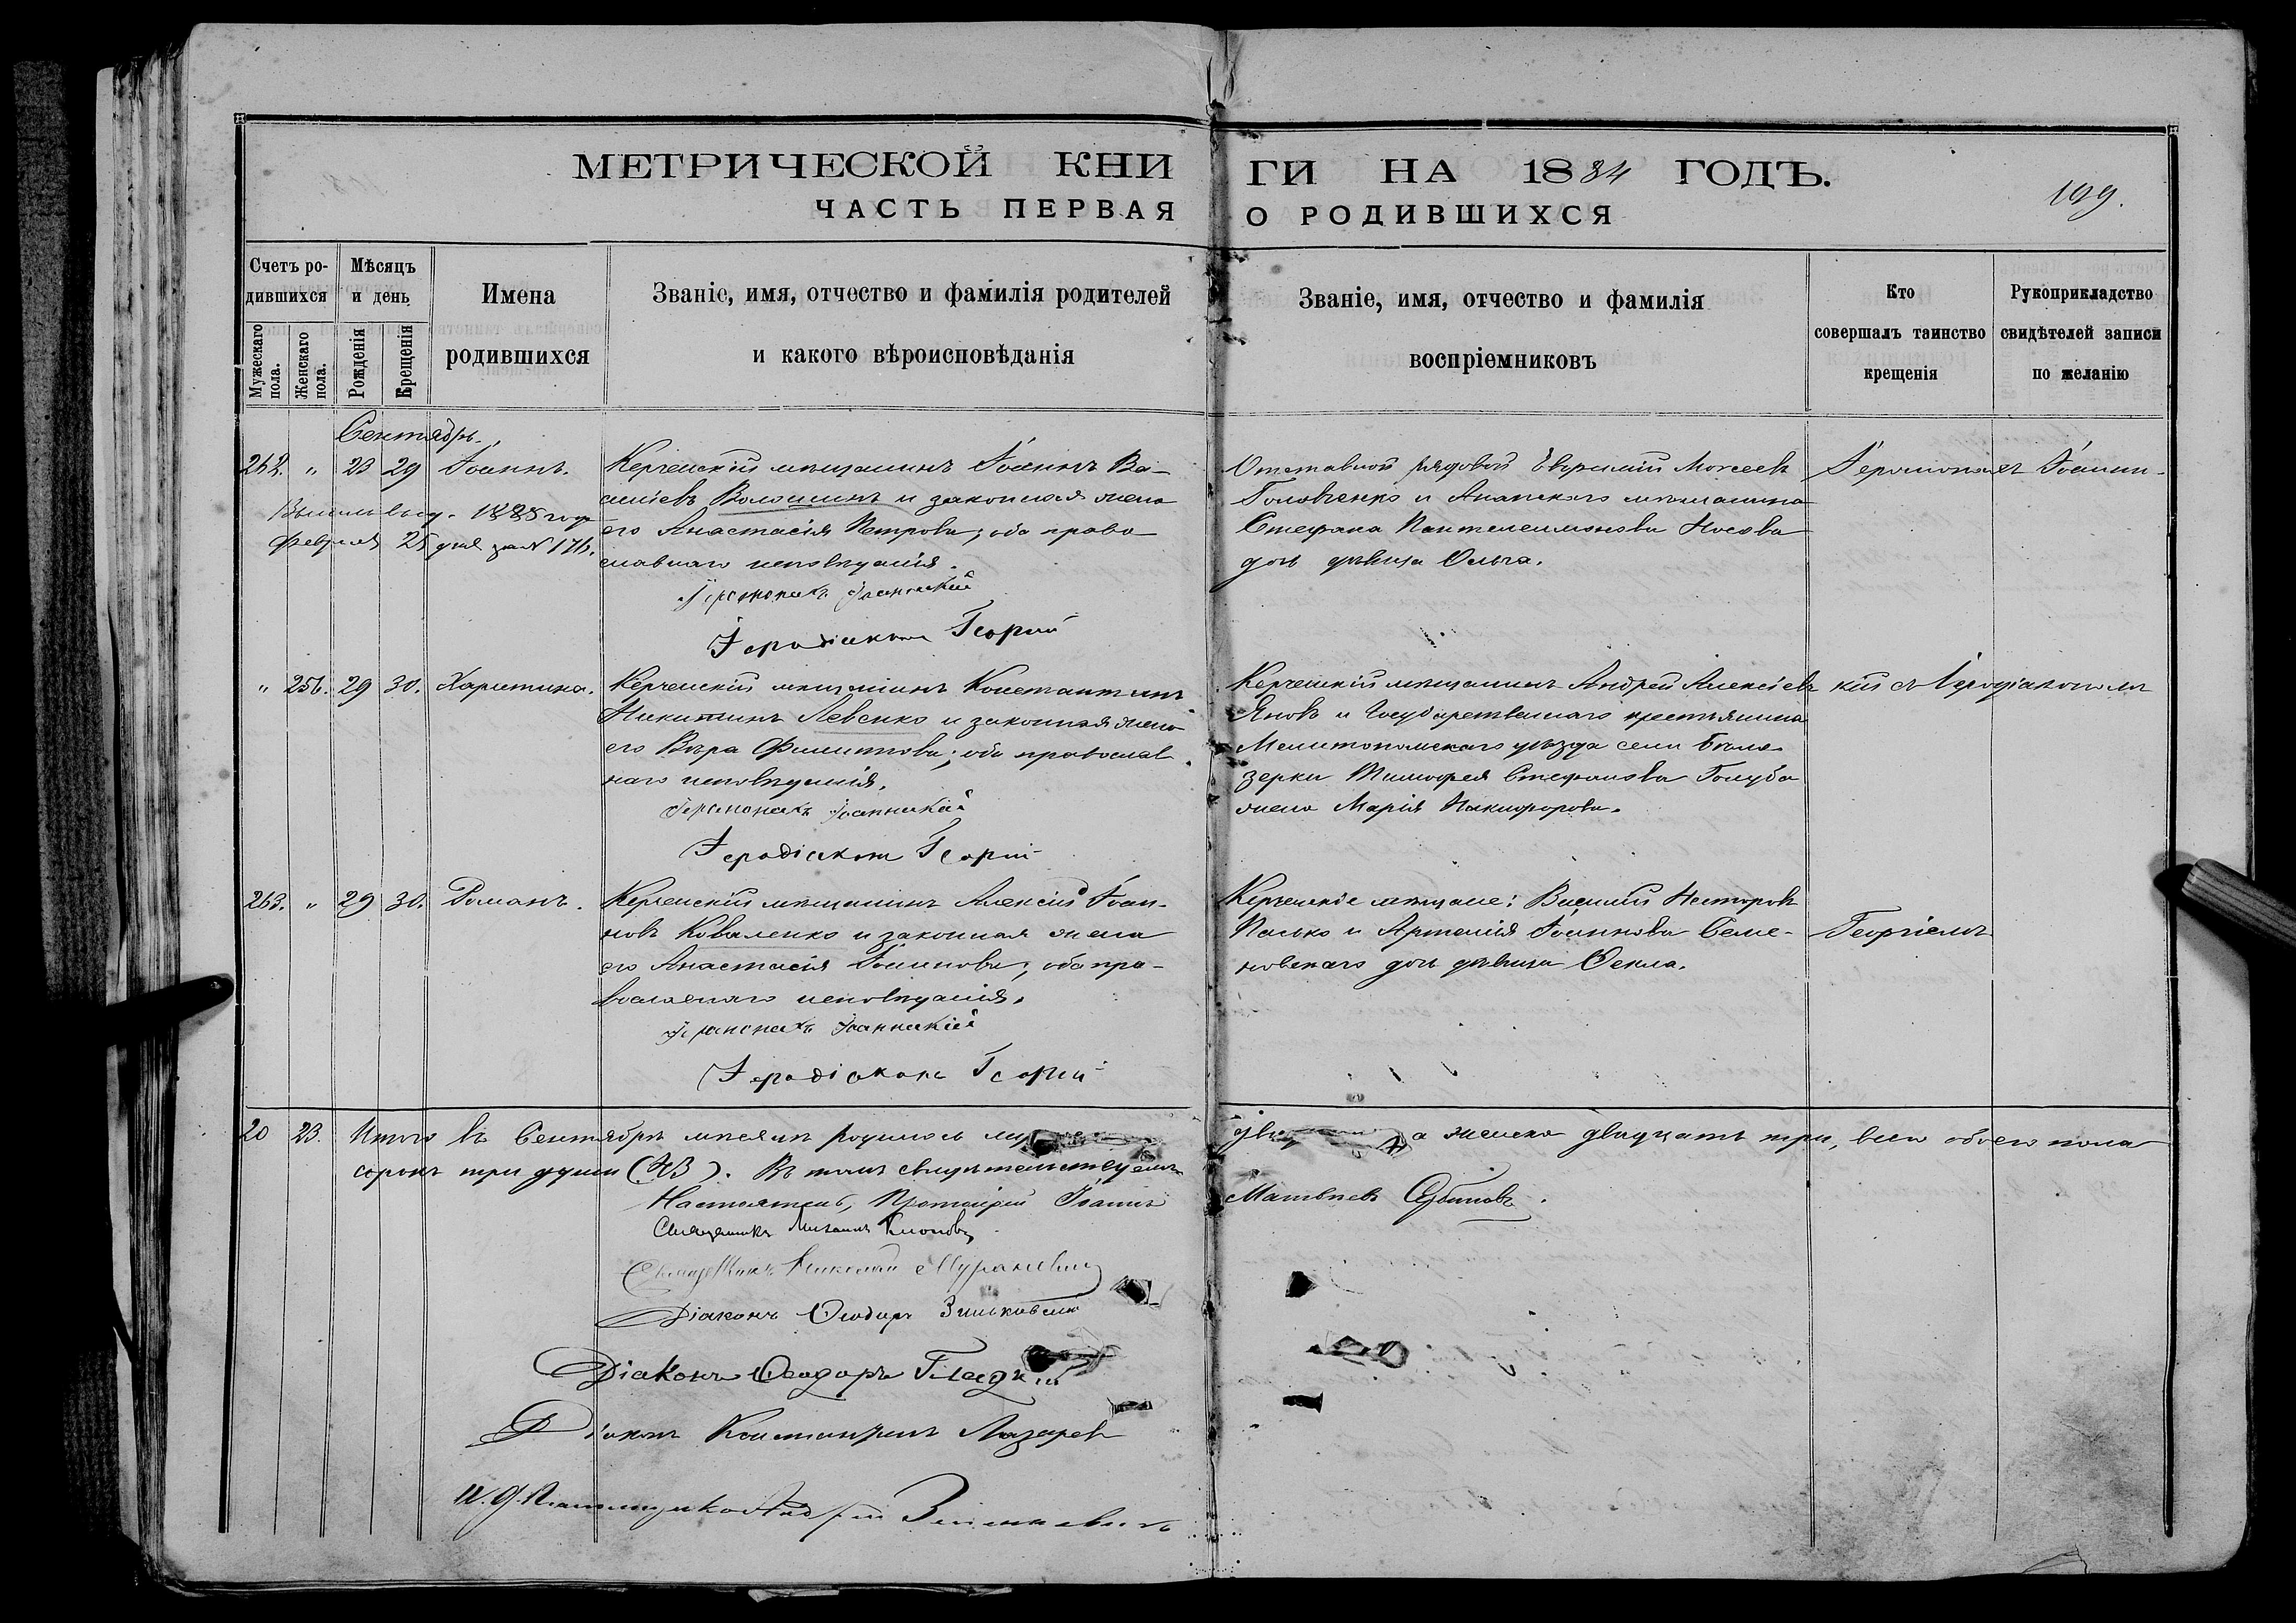 МЕТРИЧЕСКОЙ КНИГИ НА 1884 ГОДЪ.
ЧАСТЬ ПЕРВАЯ О РОДИВШИХСЯ
199.
Счетъ родившихся
Мужескаго пола.
Женскаго пола.
Мѣсяцъ и день
Рожденія
Крещенія
Имена родившихся
Званіе, имя, отчество и фамилія родителей
и какого вѣроисповѣданія
Званіе, имя, отчество и фамилія
воспріемниковъ
Кто
совершалъ таинство
крещенія
Рукоприкладство
свидѣтелей записи
по желанію
Сентябрь.
262. " 23 29 Іоаннъ.
1885 года
Февраля 25 дня за №
Керченскій мѣщанинъ Іоаннъ Ва-
силіевъ Волошинъ и законная жена
его Анастасія Петрова, оба право
славнаго исповѣданія.
Іеромонахъ Іоанникій
Іеродіаконъ Георгій
Отставной рядовой Евфимій Моисеевъ
Головченко и Анапскаго мѣщанина
Стефана Пантелеимонова Носова
дочь дѣвица Ольга.
Іеромонахъ Іоанни-
" 256. 29 30. Харитина.
Керченскій мѣщанинъ Константинъ
Никитинъ Левенко и законная жена
его Вѣра Филиппова; оба православ
наго исповѣданія.
Іеромонахъ Іоанникій
Іеродіаконъ Георгій
Керченскій мѣщанинъ Андрей Алексіевъ
Яновъ и Государственнаго крестьянина
Мелитопольскаго уѣзда села Бѣло
зерки Тимофея Стефанова Голуба
жена Марія Никифорова.
кій съ Іеродіакономъ
263. " 29 30. Романъ.
Керченскій мѣщанинъ Алексій Іоан-
новъ Коваленко и законная жена
его Анастасія Іоаннова, оба пра-
вославнаго исповѣданія.
Іеромонахъ Іоанникій
Іеродіаконъ Георгій
Керченскіе мѣщане: Василій Несторовъ
Палько и Артемія Іоаннова Семе-
новскаго дочь дѣвица Ѳекла.
Георгіемъ
20 23. Итого въ Сентябрѣ мѣсяцѣ родилось а женска двадцать три, всего обоего пола
сорокъ три души (43). Въ томъ свидѣтельствуемъ
Настоятель, Протоіерей Іоаннъ Матвѣевъ
Священникъ Михаилъ
Священникъ Николай
Діаконъ Ѳеодоръ Зиньковскій
Діаконъ Ѳеодоръ
Діаконъ Константинъ Лазаревъ
И. д. Псаломщика